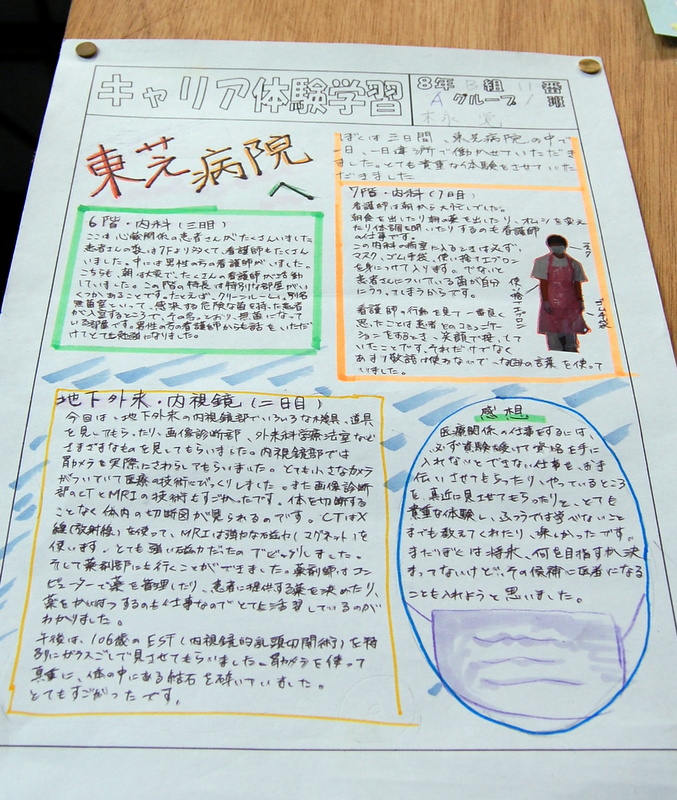 キャリア体験学習
8年 B組 11番
A グループ 1 班
東芝病院
へ
ぼくは三日間、東芝病院の中で
一日一日違う所で働かせていただき
ました。とても貴重な体験をさせていた
だきました
7階・内科(1日目)
看護師は朝から大忙しでした。
朝食を出したり朝の薬を出したり、オムツを変え
たり体調を聞いたりするのも看護師
の仕事です。
この内科の病室に入るときは必ず、
マスク、ゴム手袋、使い捨てエプロン
を身につけて入ります。でないと
患者さんについている菌が自分
にうつってしまうからです。
看護師の行動を見て一番良く
思ったことは患者とのコミュニケー
ションをとるとき、笑顔で接して
いたことです。それだけでなく
あまり敬語は使わないで 自の言葉を使って
いました。
マスク
ゴム手袋
使い捨てエプロン
6階・内科(三日目)
ここは心臓関係の患者さんがたくさんいました
患者さんの数は7Fより多くて、看護師もたくさん
いました。中には男性の方の看護師がいました。
こちらも、朝は大変で、たくさんの看護師が活動
していました。この階の特長は特別な部屋がい
くつかあることです。たとえば、クリーンルーム。別名
無菌室といって、感染する危険な菌を持った患者
が入室するところで、その名のとおり、無菌になって
いる部屋です。男性の方の看護師からも話をいただ
けてとても勉強になりました。
地下外来・内視鏡(二日目)
今日は、地下外来の内視鏡部でいろいろな機具、道具
を見してもらったり、画像診断部、外来科学療法室など
さまざまなものを見してもらいました。内視鏡部では
胃カメラを実際にさわらしてもらいました。とても小さなカメラ
がついていて医療の技術にびっくりしました。また画像診断
部のCTとMRIの技術もすごかったです。体を切断する
ことなく体内の切断図が見られるのです。CTはX
線(放射線)を使って、MRIは強力な石磁力(マグネット)を
使います。とても強い石磁力だったのでビックリしました。
そして薬剤部にも行くことができました。薬剤師はコン
ピューターで薬を管理したり、患者に提供する薬を決めたり、
薬をかいはつするのも仕事なのでとても活習しているのが
わかりました。
午後は、106歳のEST(内視鏡的乳頭切開術)を特
別にガラスごしで見させてもらいました。胃カメラを使って
真重に、体の中にある結石を砕いていました。
とてもすごかったです。
感想
医療関係の仕事をするには、
必ず資験を受けて資格を手に
入れないとできない仕事を、お手
伝いさせてもらったり、やっているところ
を、真近に見させてもらったりと、とても
貴重な体験し、ふつうでは学べないこと
までも教えてくれたり、楽しかったです。
まだぼくは将来、何を目指すか決
まってないけど、その候補に医者になる
ことも入れようと思いました。